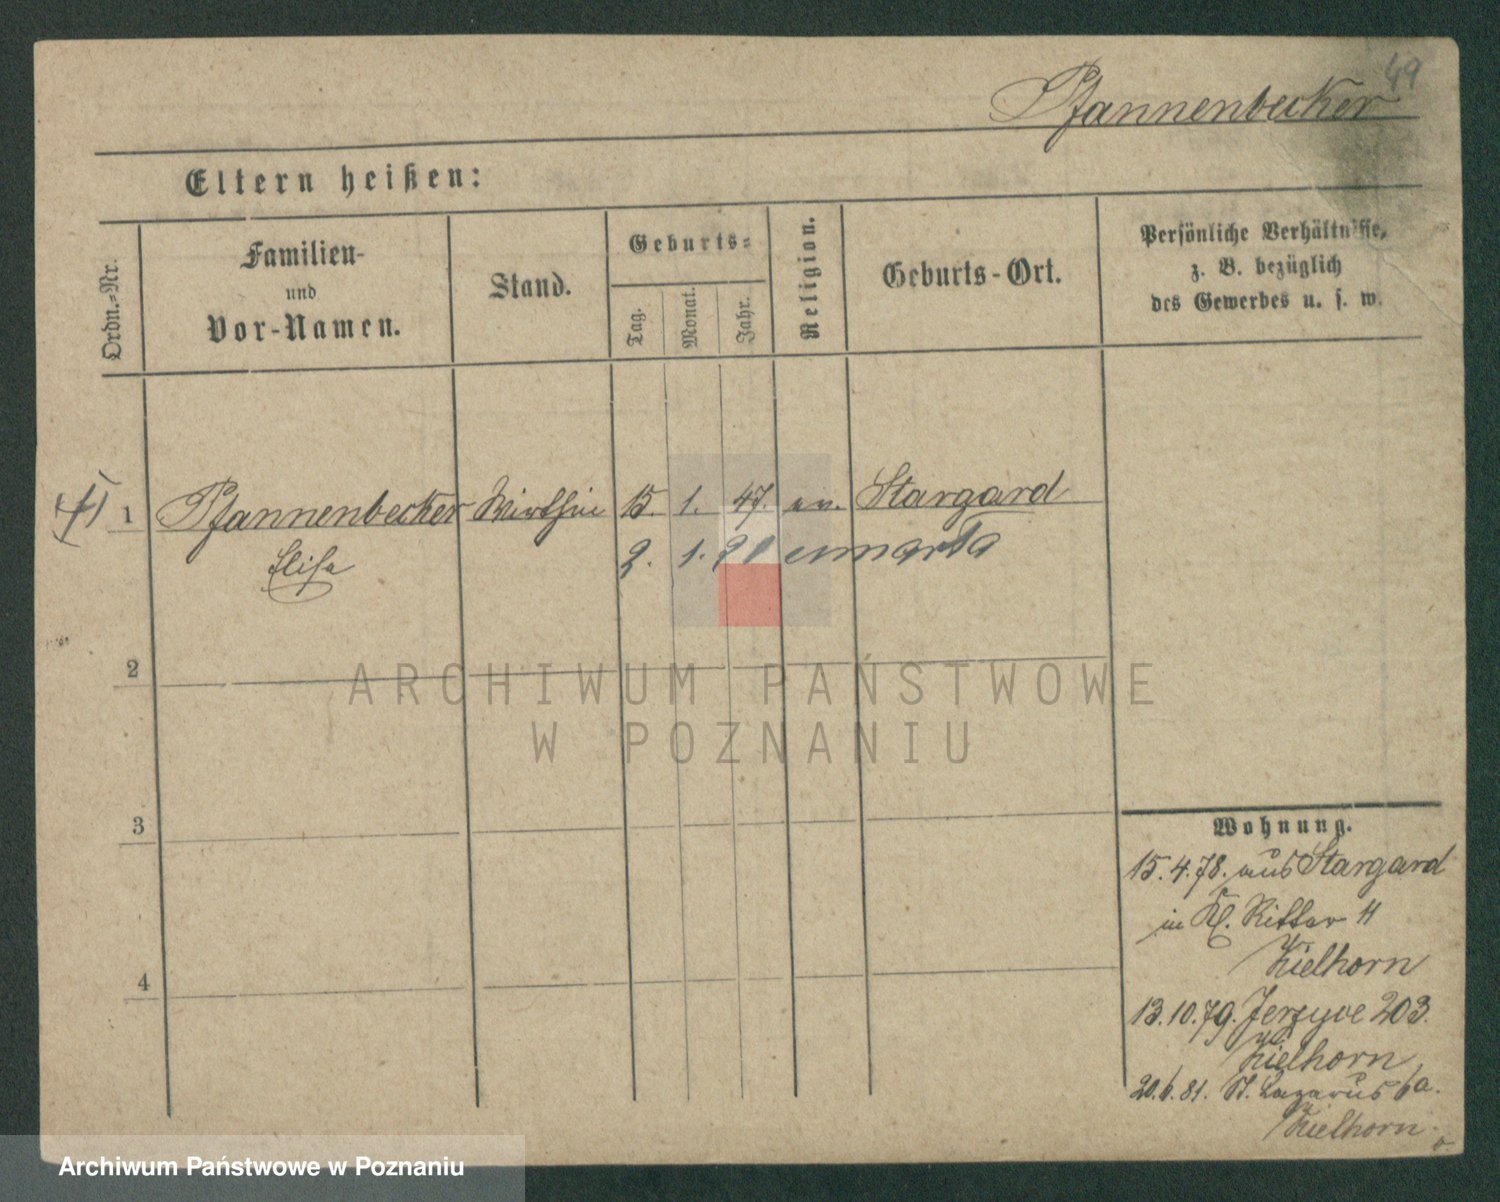 49
Pfannenbecker
Eltern heißen:
Ordn.-Nr.
Familien-
und
Vor-Namen.
Stand.
Geburts-
Tag.
Monat.
Jahr.
Religion.
Geburts-Ort.
Persönliche Verhältnisse,
z. B. bezüglich
des Gewerbes u. s. w.
1 Pfannenbecker Wirthin 15. 1. 47. ev. Stargard
Elise
2. 1. 91 umarła
2
3
4
Wohnung.
15.4.78. aus Stargard
in Kl. Ritter 11
Kielhorn
13.10.79. Jerzyce 203.
Kielhorn
20.6.81. St. Lazarus 6a.
Kielhorn
ARCHIWUM PAŃSTWOWE
W POZNANIU
Archiwum Państwowe w Poznaniu